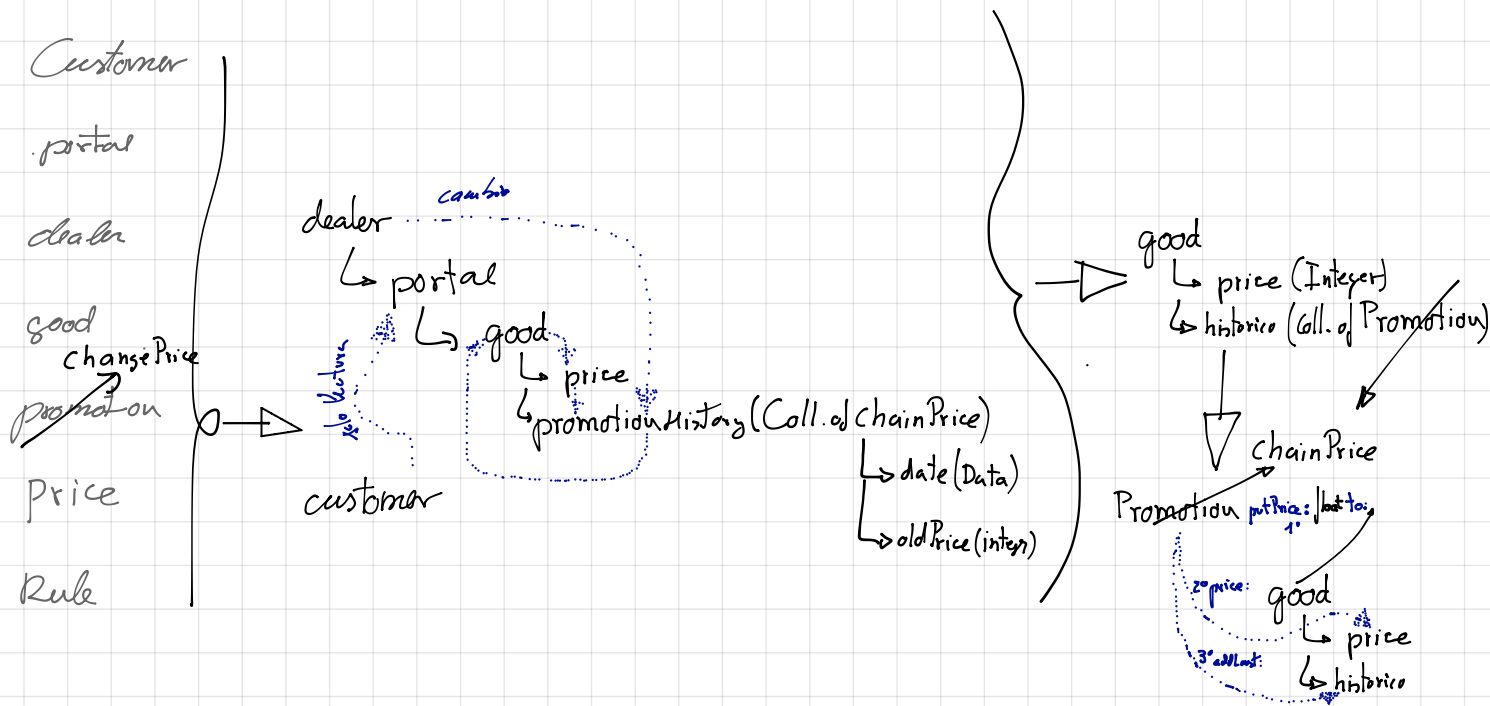 Customer
portal
dealer
good
changePrice
promotion
Price
Rule
cambio
dealer
portal
good
price
promotionHistory (Coll. of ChainPrice)
date (Data)
oldPrice (integr)
solo lectura
customer
good
price (Integer)
historico (Coll. of Promotion)
chainPrice
Promotion putPrice: to:
1º
2º price:
good
price
3º addLast:
historico